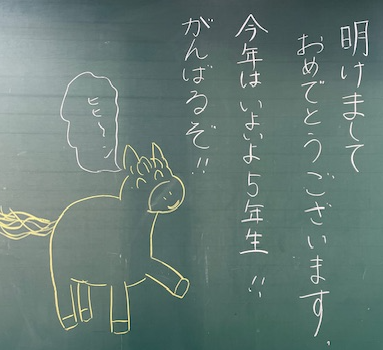 明けまして
おめでとうございます。
今年はいよいよ5年生!!
がんばるぞ!!
ヒヒーン